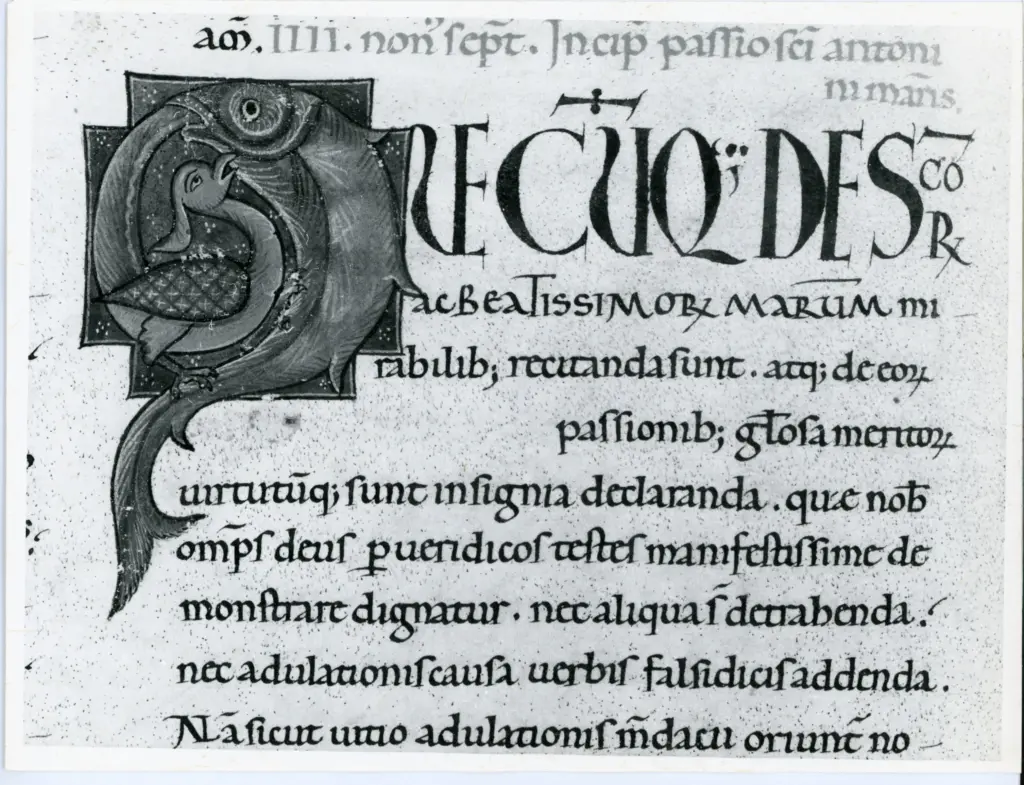 am̃. IIII. noñ sept̃. Incip̃ passio sc̃i antoni
ni mar̃is.
QUECŨQ; DE S̅CORꝜ
ac BeaTISSIMORꝜ MARŪM mi
rabilib; recitanda sunt. atq; de eoꝝ
passionib; gl̃osa meritoꝝ
uirtutūq; sunt insignia declaranda. quæ nob̄
omp̃s deus ꝑ ueridicos testes manifestissime de
monstrare dignatur. nec aliquas̄ detrahenda.
nec adulationis causa uerbis falsidicis addenda.
Nā sicut uitio adulationis m̄dacii oriunt̃ no